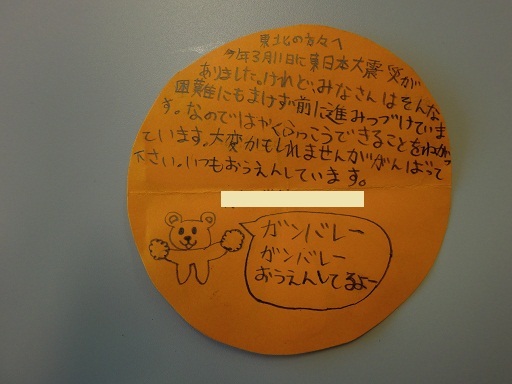 東北の方々へ
今年3月11日に東日本大震災が
ありました。けれど、みなさんはそんな
困難にもまけず前に進みつづけていま
す。なのではやくふっこうできることをねがっ
ています。大変かもしれませんががんばって
下さい。いつもおうえんしています。
ガンバレー
ガンバレー
おうえんしてるよー